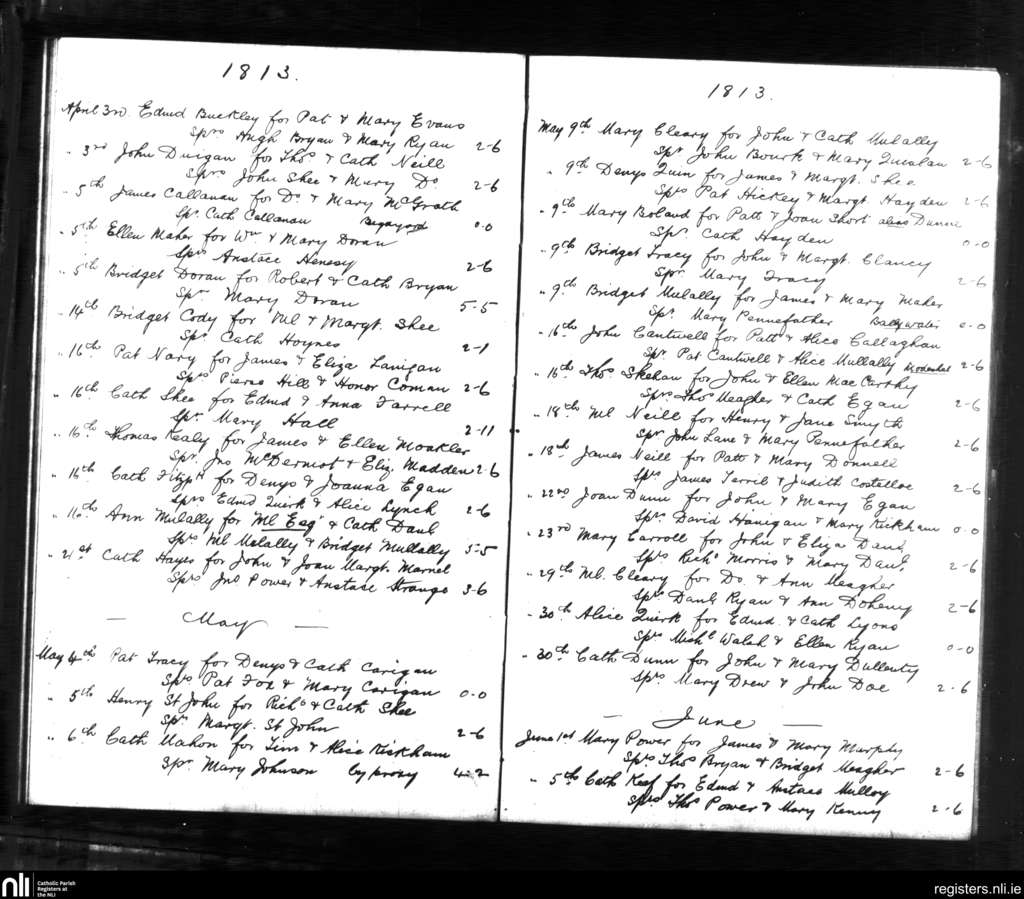 1813.
April 3rd Edmd Buckley for Pat & Mary Evans
Sprs Hugh Bryan & Mary Ryan 2-6
" 3rd John Duigan for Thos & Cath Neill
Sprs John Shee & Mary Do 2-6
" 5th James Callanan for Do & Mary McGrath
Spr Cath Callanan 0-0
" 5th Ellen Maher for Wm & Mary Doran
Sprs Anstace Henesy 2-6
" 5th Bridget Doran for Robert & Cath Bryan
Spr Mary Doran 5-5
" 14th Bridget Cody for Ml & Margt. Shee
Spr Cath Hoynes 2-1
" 16th Pat Nary for James & Eliza Lanigan
Sprs Pierce Hill & Honor Coman 2-6
" 16th Cath Shee for Edmd & Anna Farrell
Spr Mary Hall 2-11
" 16th Thomas Kealy for James & Ellen Moakler
Spr. Jno McDermot & Eliz. Madden 2-6
" 16th Cath for Denys & Joanna Egan
Sprs Edmd Quirk & Alice Lynch 2-6
" 16th Ann Mulally for Ml Esq & Cath Danl
Sprs Ml Melally & Bridget Mullally 5-5
" 21st Cath Hayes for John & Joan Margt. Marnel
Sprs Jno Power & Anstace Strange 3-6
— May —
May 4th Pat Tracy for Denys & Cath Carigan
Sprs Pat Fox & Mary Carigan 0-0
" 5th Henry St John for Richd & Cath Shee
Spr. Margt. St John 2-6
" 6th Cath Mahon for Tim & Alice Kickham
Spr Mary Johnson by proxy 4-2
1813.
May 9th Mary Cleary for John & Cath Mulally
Spr John Bourk & Mary Quinlan 2-6
" 9th Denys Quin for James & Margt. Shee
Sprs Pat Hickey & Margt. Hayden 2-6
" 9th Mary Boland for Patt & Joan Short alias
Spr. Cath Hayden 0-0
" 9th Bridget Tracy for John & Margt. Clancy
Spr Mary Tracy 2-6
" 9th Bridget Mulally for James & Mary Maher
Spr. Mary Pennefather 0-0
" 16th John Cantwell for Patt & Alice Callaghan
Spr. Pat Cantwell & Alice Mullally 2-6
" 16th Thos Skehan for John & Ellen Mac Carthy
Sprs Thos Meagher & Cath Egan 2-6
" 18th Ml Neill for Henry & Jane Smyth
Spr John Lane & Mary Pennefather 2-6
" 18th James Neill for Patt & Mary Donnell
Sprs James Terril & Judith Costelloe 2-6
" 22nd Joan Dunn for John & Mary Egan
Spr. David Hanigan & Mary Kickham 0-0
" 23rd Mary Carroll for John & Eliza Danl
Sprs Richd Morris & Mary Danl 2-6
" 29th Ml. Cleary for Do. & Ann Meagher
Spr. Danl Ryan & Ann Doheny 2-6
" 30th Alice Quirk for Edmd. & Cath Lyons
Sprs Michl Walsh & Ellen Ryan 0-0
" 30th Cath Dunn for John & Mary Dullenty
Sprs Mary Drew & John Doe 2-6
— June —
June 1st Mary Power for James & Mary Murphy
Sprs Thos Bryan & Bridget Meagher 2-6
" 5th Cath Keef for Edmd & Anstace Mulloy
Sprs Thos Power & Mary Kenny 2-6
nli
Catholic Parish
Registers at
the NLI
registers.nli.ie